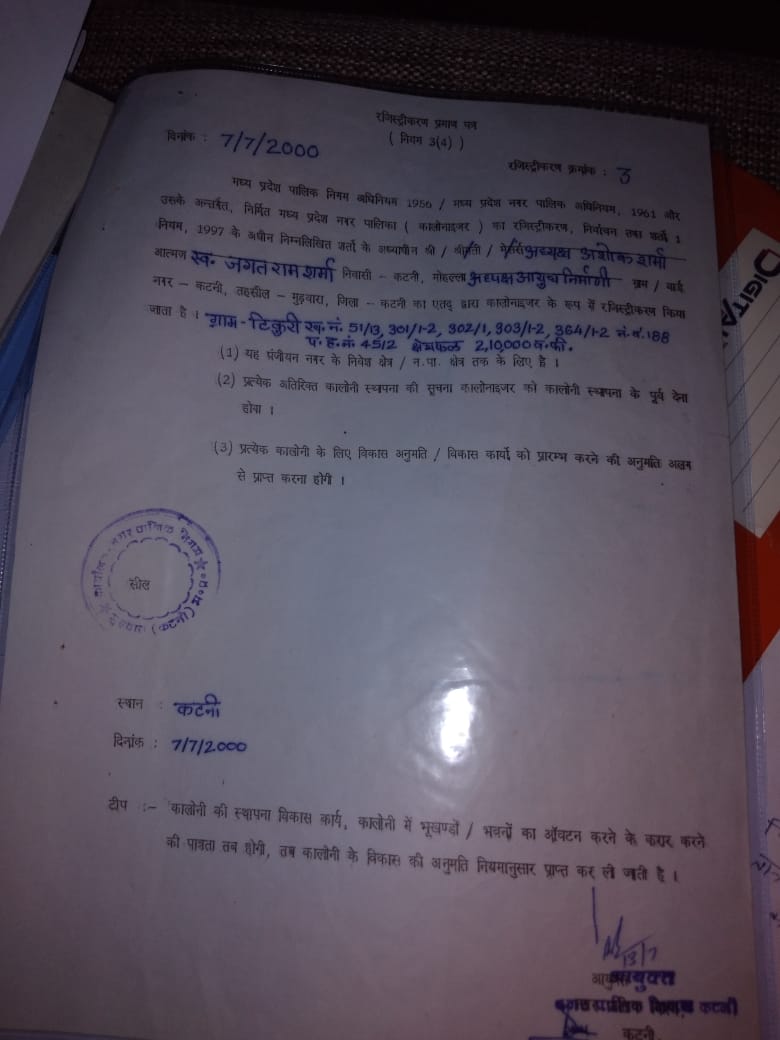 रजिस्ट्रीकरण प्रमाण पत्र
( नियम 3(4) )
दिनांक : 7/7/2000
रजिस्ट्रीकरण क्रमांक : 3
मध्य प्रदेश पालिक निगम अधिनियम 1956 / मध्य प्रदेश नगर पालिक अधिनियम, 1961 और
उसके अन्तर्गत, निर्मित मध्य प्रदेश नगर पालिका ( कालोनाइजर ) का रजिस्ट्रीकरण, निर्वाचन तथा शर्तो 1
नियम, 1997 के अधीन निम्नलिखित शर्तो के अध्याधीन श्री / श्रीमती / मेसर्स अध्यक्ष अशोक शर्मा
आत्मज स्व. जगतराम शर्मा निवासी - कटनी, मोहल्ला अध्यक्ष आयुध निर्माणी ग्राम / वार्ड
नगर - कटनी, तहसील - मुड़वारा, जिला - कटनी का एतद् द्वारा कालोनाइजर के रूप में रजिस्ट्रीकरण किया
जाता है । ग्राम - टिकुरी ख. नं. 51/13, 301/1-2, 302/1, 303/1-2, 364/1-2 नं. ब. 188
प. ह. नं. 45/2 क्षेत्रफल 2,10,000 व. फी.
(1) यह पंजीयन नगर के निवेश क्षेत्र / न.पा. क्षेत्र तक के लिए है ।
(2) प्रत्येक अतिरिक्त कालोनी स्थापना की सूचना कालोनाइजर को कालोनी स्थापना के पूर्व देना
होगा ।
(3) प्रत्येक कालोनी के लिए विकास अनुमति / विकास कार्यो को प्रारम्भ करने की अनुमति अलग
से प्राप्त करना होगी ।
कार्यालय नगर पालिक निगम
सील
मुड़वारा (कटनी) म॰प्र॰
स्थान : कटनी
दिनांक : 7/7/2000
टीप :- कालोनी की स्थापना विकास कार्य, कालोनी में भूखण्डों / भवनों का ऑवटन करने के करार करने
की पात्रता तब होगी, तब कालोनी के विकास की अनुमति नियमानुसार प्राप्त कर ली जाती है ।
13/7
आयुक्त
कटनी
कटनी
DIGIT